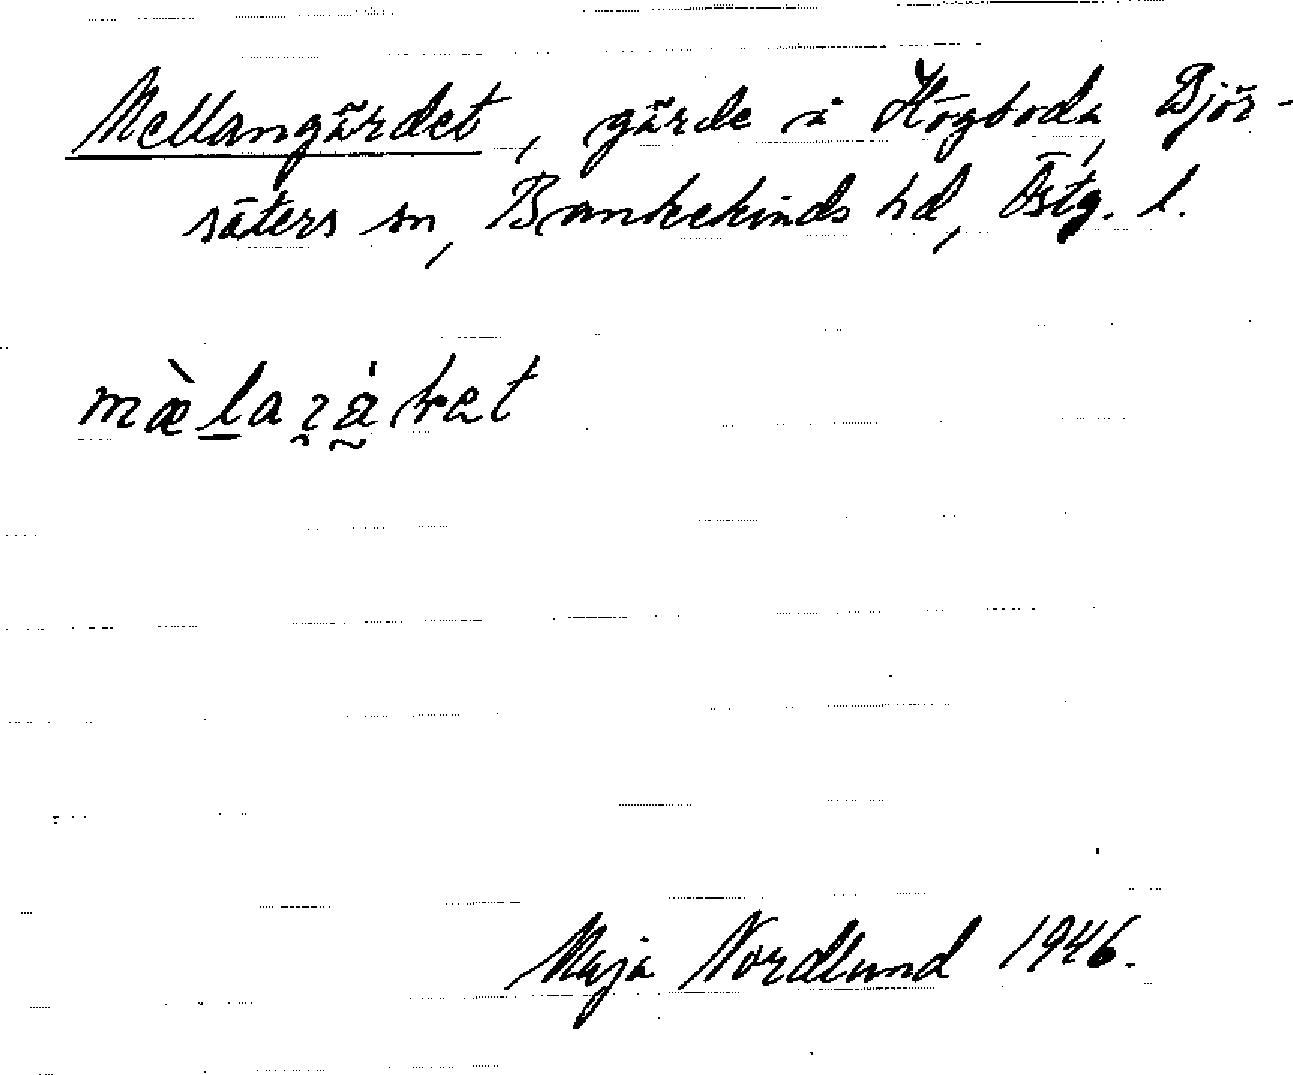 Mellangärdet, gärde å Högboda, Björ-
säters sn, Bankekinds hd, Östg. l.
Maja Nordlund 1946.